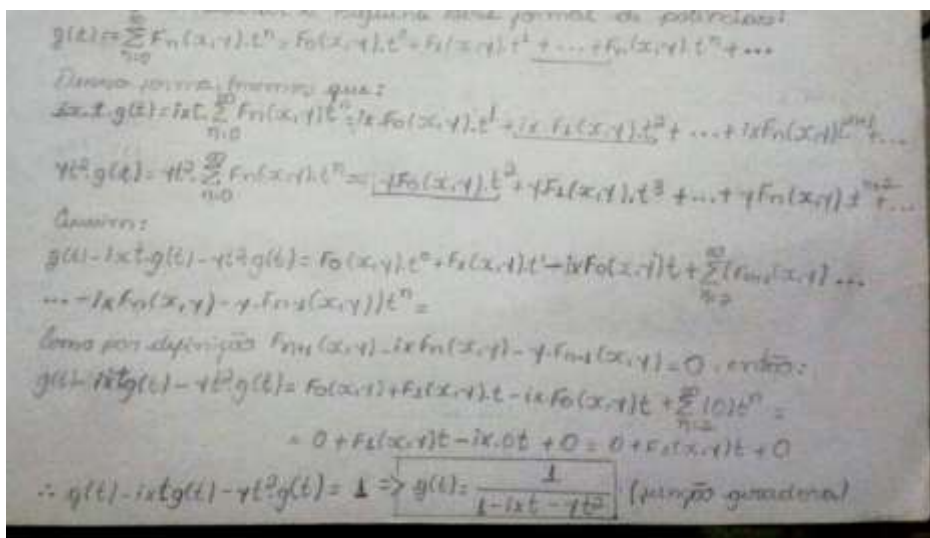 seguinte série formal de potências:
g(t) = ∑_{n=0}^{∞} Fn(x,y).t^n = F0(x,y).t^0 + F1(x,y).t^1 + ... + Fn(x,y).t^n + ...
Dessa forma, temos que:
ix.t.g(t) = ixt.∑_{n=0}^{∞} Fn(x,y)t^n = ix F0(x,y).t^1 + ix.F1(x,y).t^2 + ... + ixFn(x,y)t^{n+1} + ...
yt^2.g(t) = yt^2.∑_{n=0}^{∞} Fn(x,y).t^n = yF0(x,y).t^2 + yF1(x,y).t^3 + ... + yFn(x,y)t^{n+2} + ...
Assim:
g(t) - ixt.g(t) - yt^2.g(t) = F0(x,y).t^0 + F1(x,y).t^1 - ixF0(x,y)t + ∑_{n=2}^{∞} (Fn+1(x,y) ...
... - ixFn(x,y) - y.Fn-1(x,y))t^n =
Como por definição Fn+1(x,y) - ixFn(x,y) - y.Fn-1(x,y) = 0, então:
g(t) - ixtg(t) - yt^2g(t) = F0(x,y) + F1(x,y).t - ixF0(x,y)t + ∑_{n=2}^{∞} (0)t^n =
= 0 + F1(x,y)t - ix.0t + 0 = 0 + F1(x,y)t + 0
∴ g(t) - ixtg(t) - yt^2g(t) = 1 => g(t) = 1/(1 - ixt - yt^2) (função geradora)